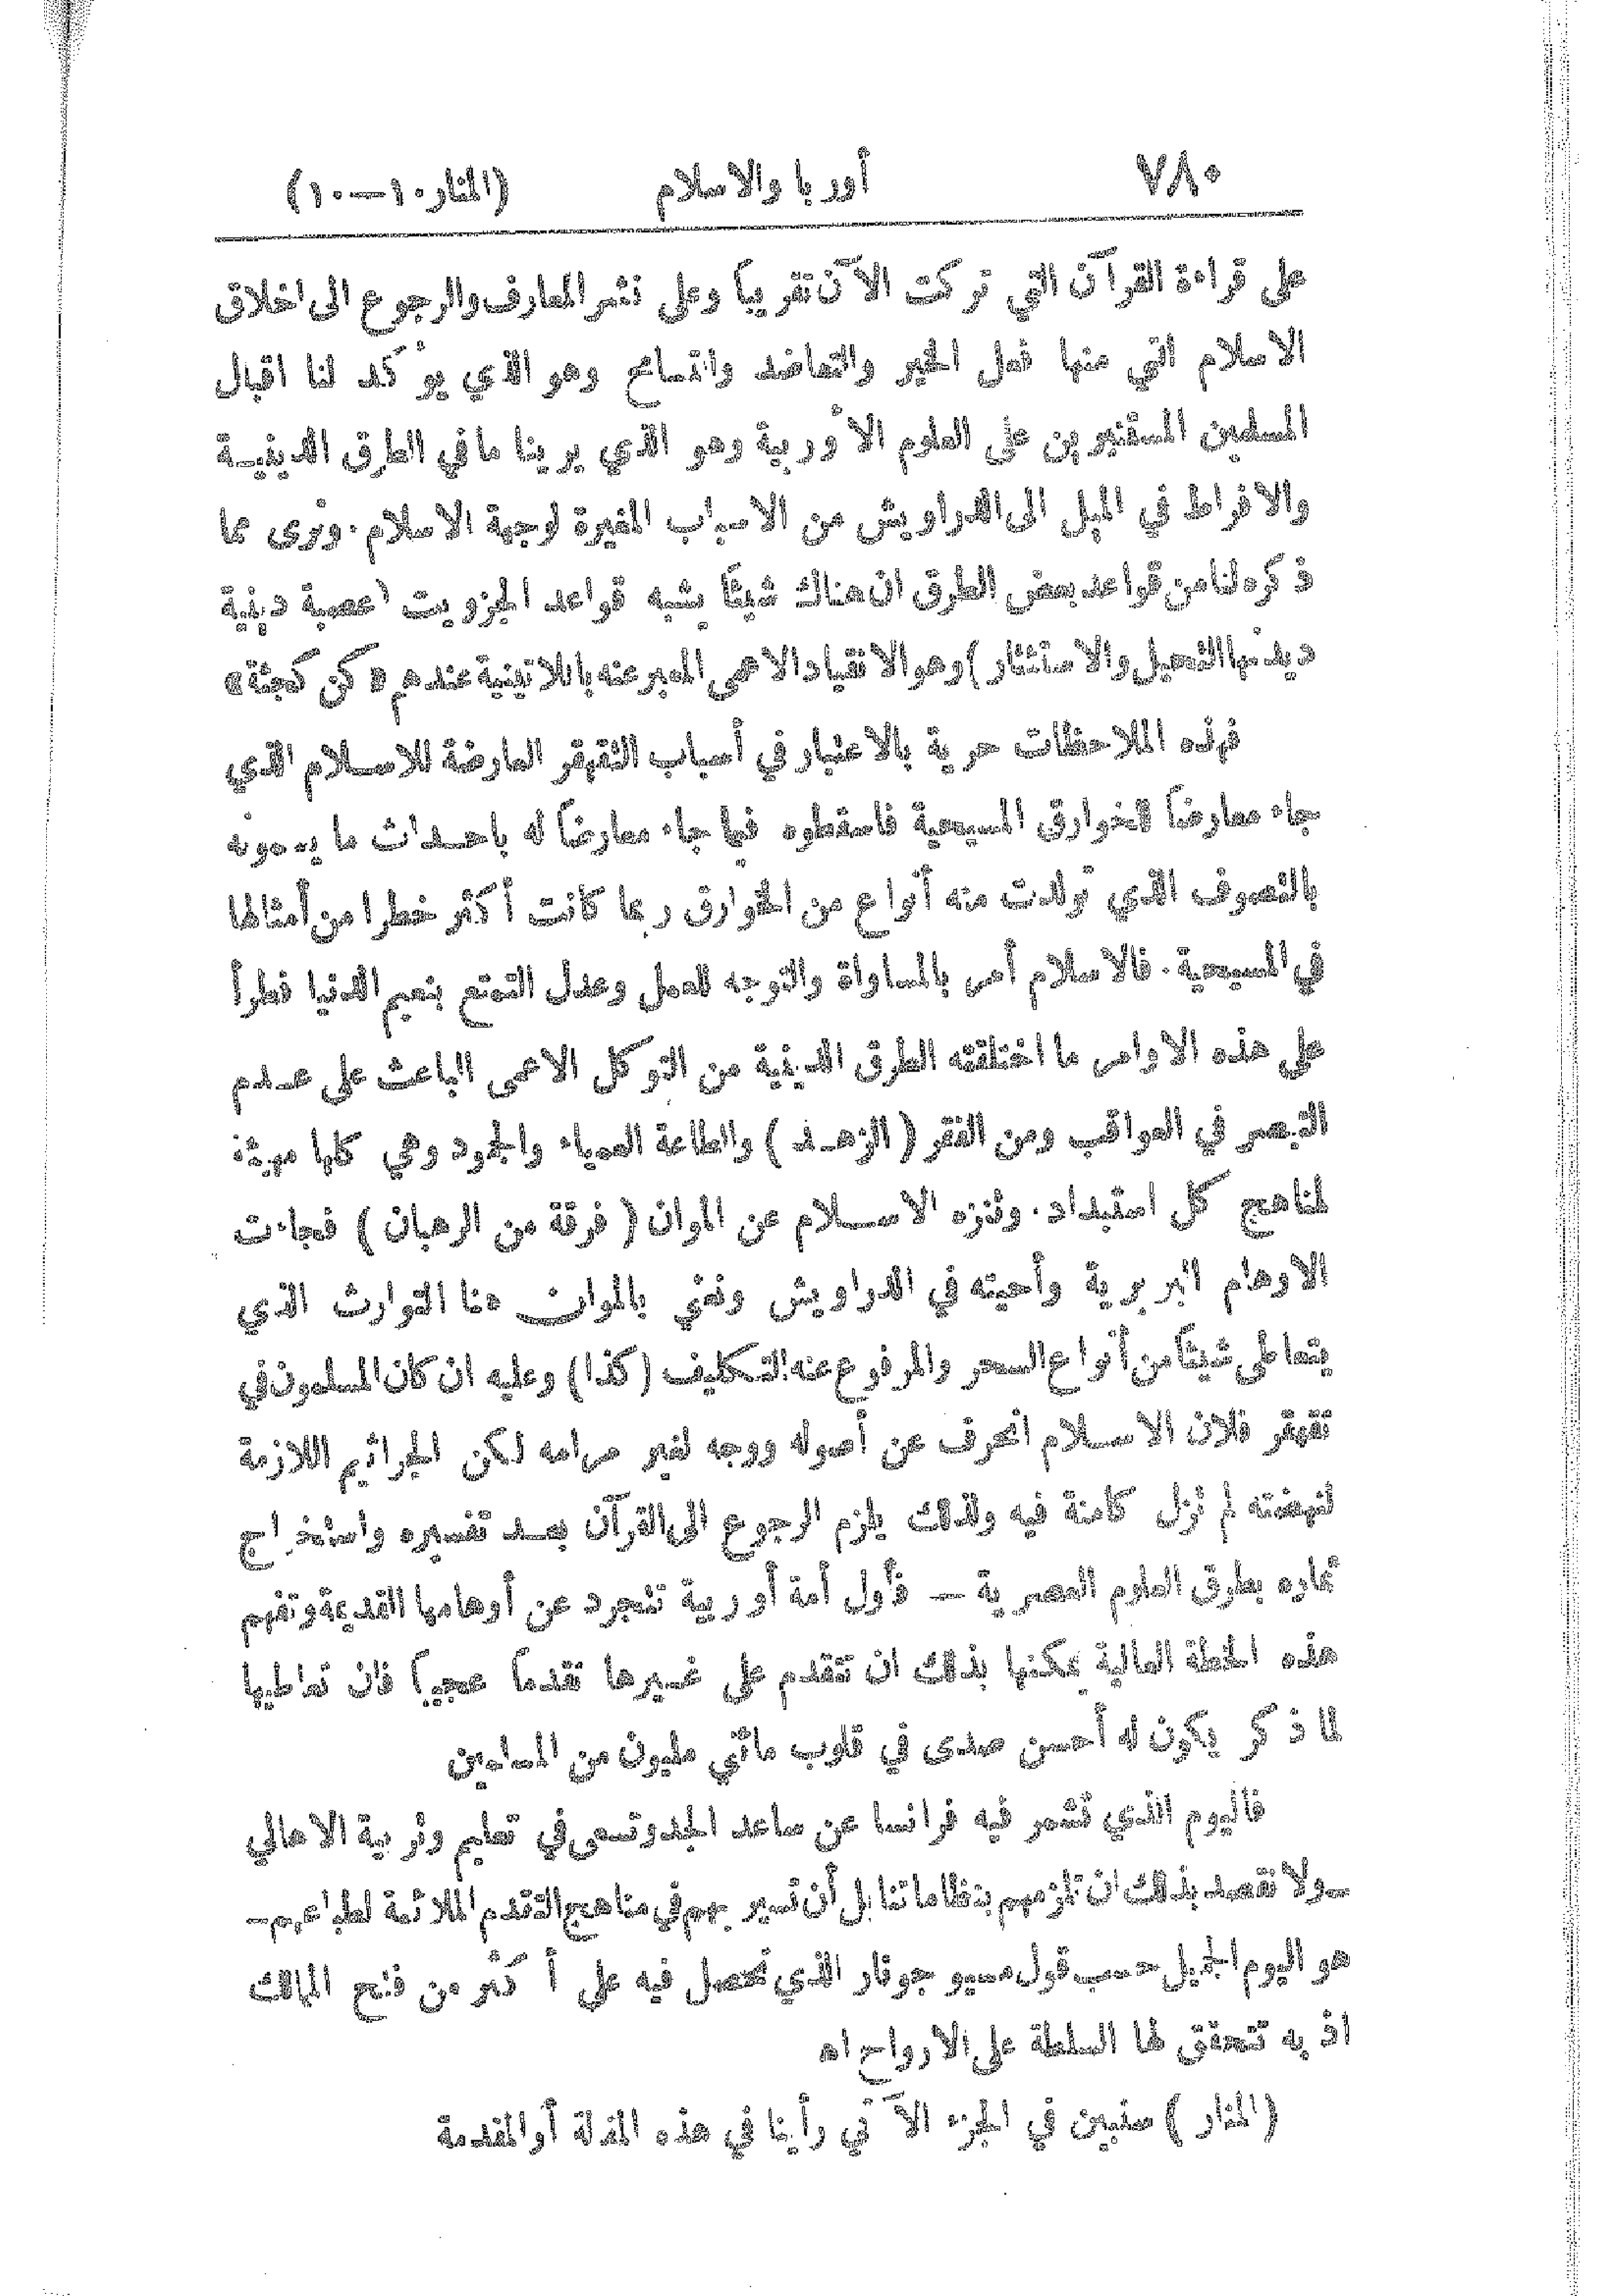 ٧٨٠ أوربا والاسلام (المنار ١٠ — ١٠)
على قراءة القرآن التي تركت الآن تقريباً وعلى نشر المعارف والرجوع الى اخلاق
الاسلام التي منها فعل الخير والتعاضد والتسامح وهو الذي يؤكد لنا اقبال
المسلمين المستنيرين على العلوم الأوربية وهو الذي يرينا ما في الطرق الدينيـة
والافراط في الميل الى الدراويش من الاسباب المغيرة لوجهة الاسلام. ونرى مما
ذكره لنا من قواعد بعض الطرق ان هناك شيئًا يشبه قواعد الجزويت (عصبة دينية
ديدنها التحيل والاستئثار) وهو الانقياد الاعمى المعبر عنه باللاتينية عندهم «كن كجثة»
فهذه الملاحظات حرية بالاعتبار في أسباب التقهقر العارضة للاسـلام الذي
جاء معارضاً للخوارق المسيحية فاسقطوه فيما جاء معارضاً له باحـداث ما يدعونه
بالتصوف الذي تولدت منه أنواع من الخوارق ربما كانت أكثر خطرا من أمثالها
في المسيحية. فالاسلام أمر بالمساواة والتوجه للعمل وعدل التمتع بنعيم الدنيا فطرأ
على هذه الاوامر ما اختلقته الطرق الدينية من التوكل الاعمى الباعث على عـدم
التبصر في العواقب ومن الفقر (الزهـد) والطاعة العمياء والجمود وهي كلها مهيئة
لمناهج كل استبداد. وتنزه الاسـلام عن الموان (فرقة من الرهبان) فجاءت
الاوهام البربرية وأحيته في الدراويش ونعني بالموان هنا التوارث الذي
يتعاطى شيئًا من أنواع السحر والمرفوع عنه التكليف (كذا) وعليه ان كان المسلمون في
تقهقر فلان الاسـلام انحرف عن أصوله ووجه لغير مرامه لكن الجراثيم اللازمة
لنهضته لم تزل كامنة فيه ولذلك يلزم الرجوع الى القرآن بعـد تفسيره واستخراج
ثماره بطرق العلوم العصرية — فأول أمة أوربية تتجرد عن أوهامها القديمة وتفهم
هذه الخطة العالية يمكنها بذلك ان تتقدم على غـيرها تقدماً عجيباً فان تعاطيها
لما ذكر يكون له أحسن صدى في قلوب مائتي مليون من المسلمين
فاليوم الذي تشمر فيه فرانسا عن ساعد الجد وتسعى في تعليم وتربية الاهالي
ـ ولا نقصد بذلك ان نلزمهم بنظاماتنا بل أن نسير بهم في مناهج التقدم الملائمة لطباعهم ـ
هو اليوم الجميل حسب قول مسيو جونار الذي تحصل فيه على أكثر من فتح الممالك
اذ به تتحقق لها السلطة على الارواح اه
(المنار) سنبين في الجزء الآتي رأينا في هذه المقالة أو المقدمة